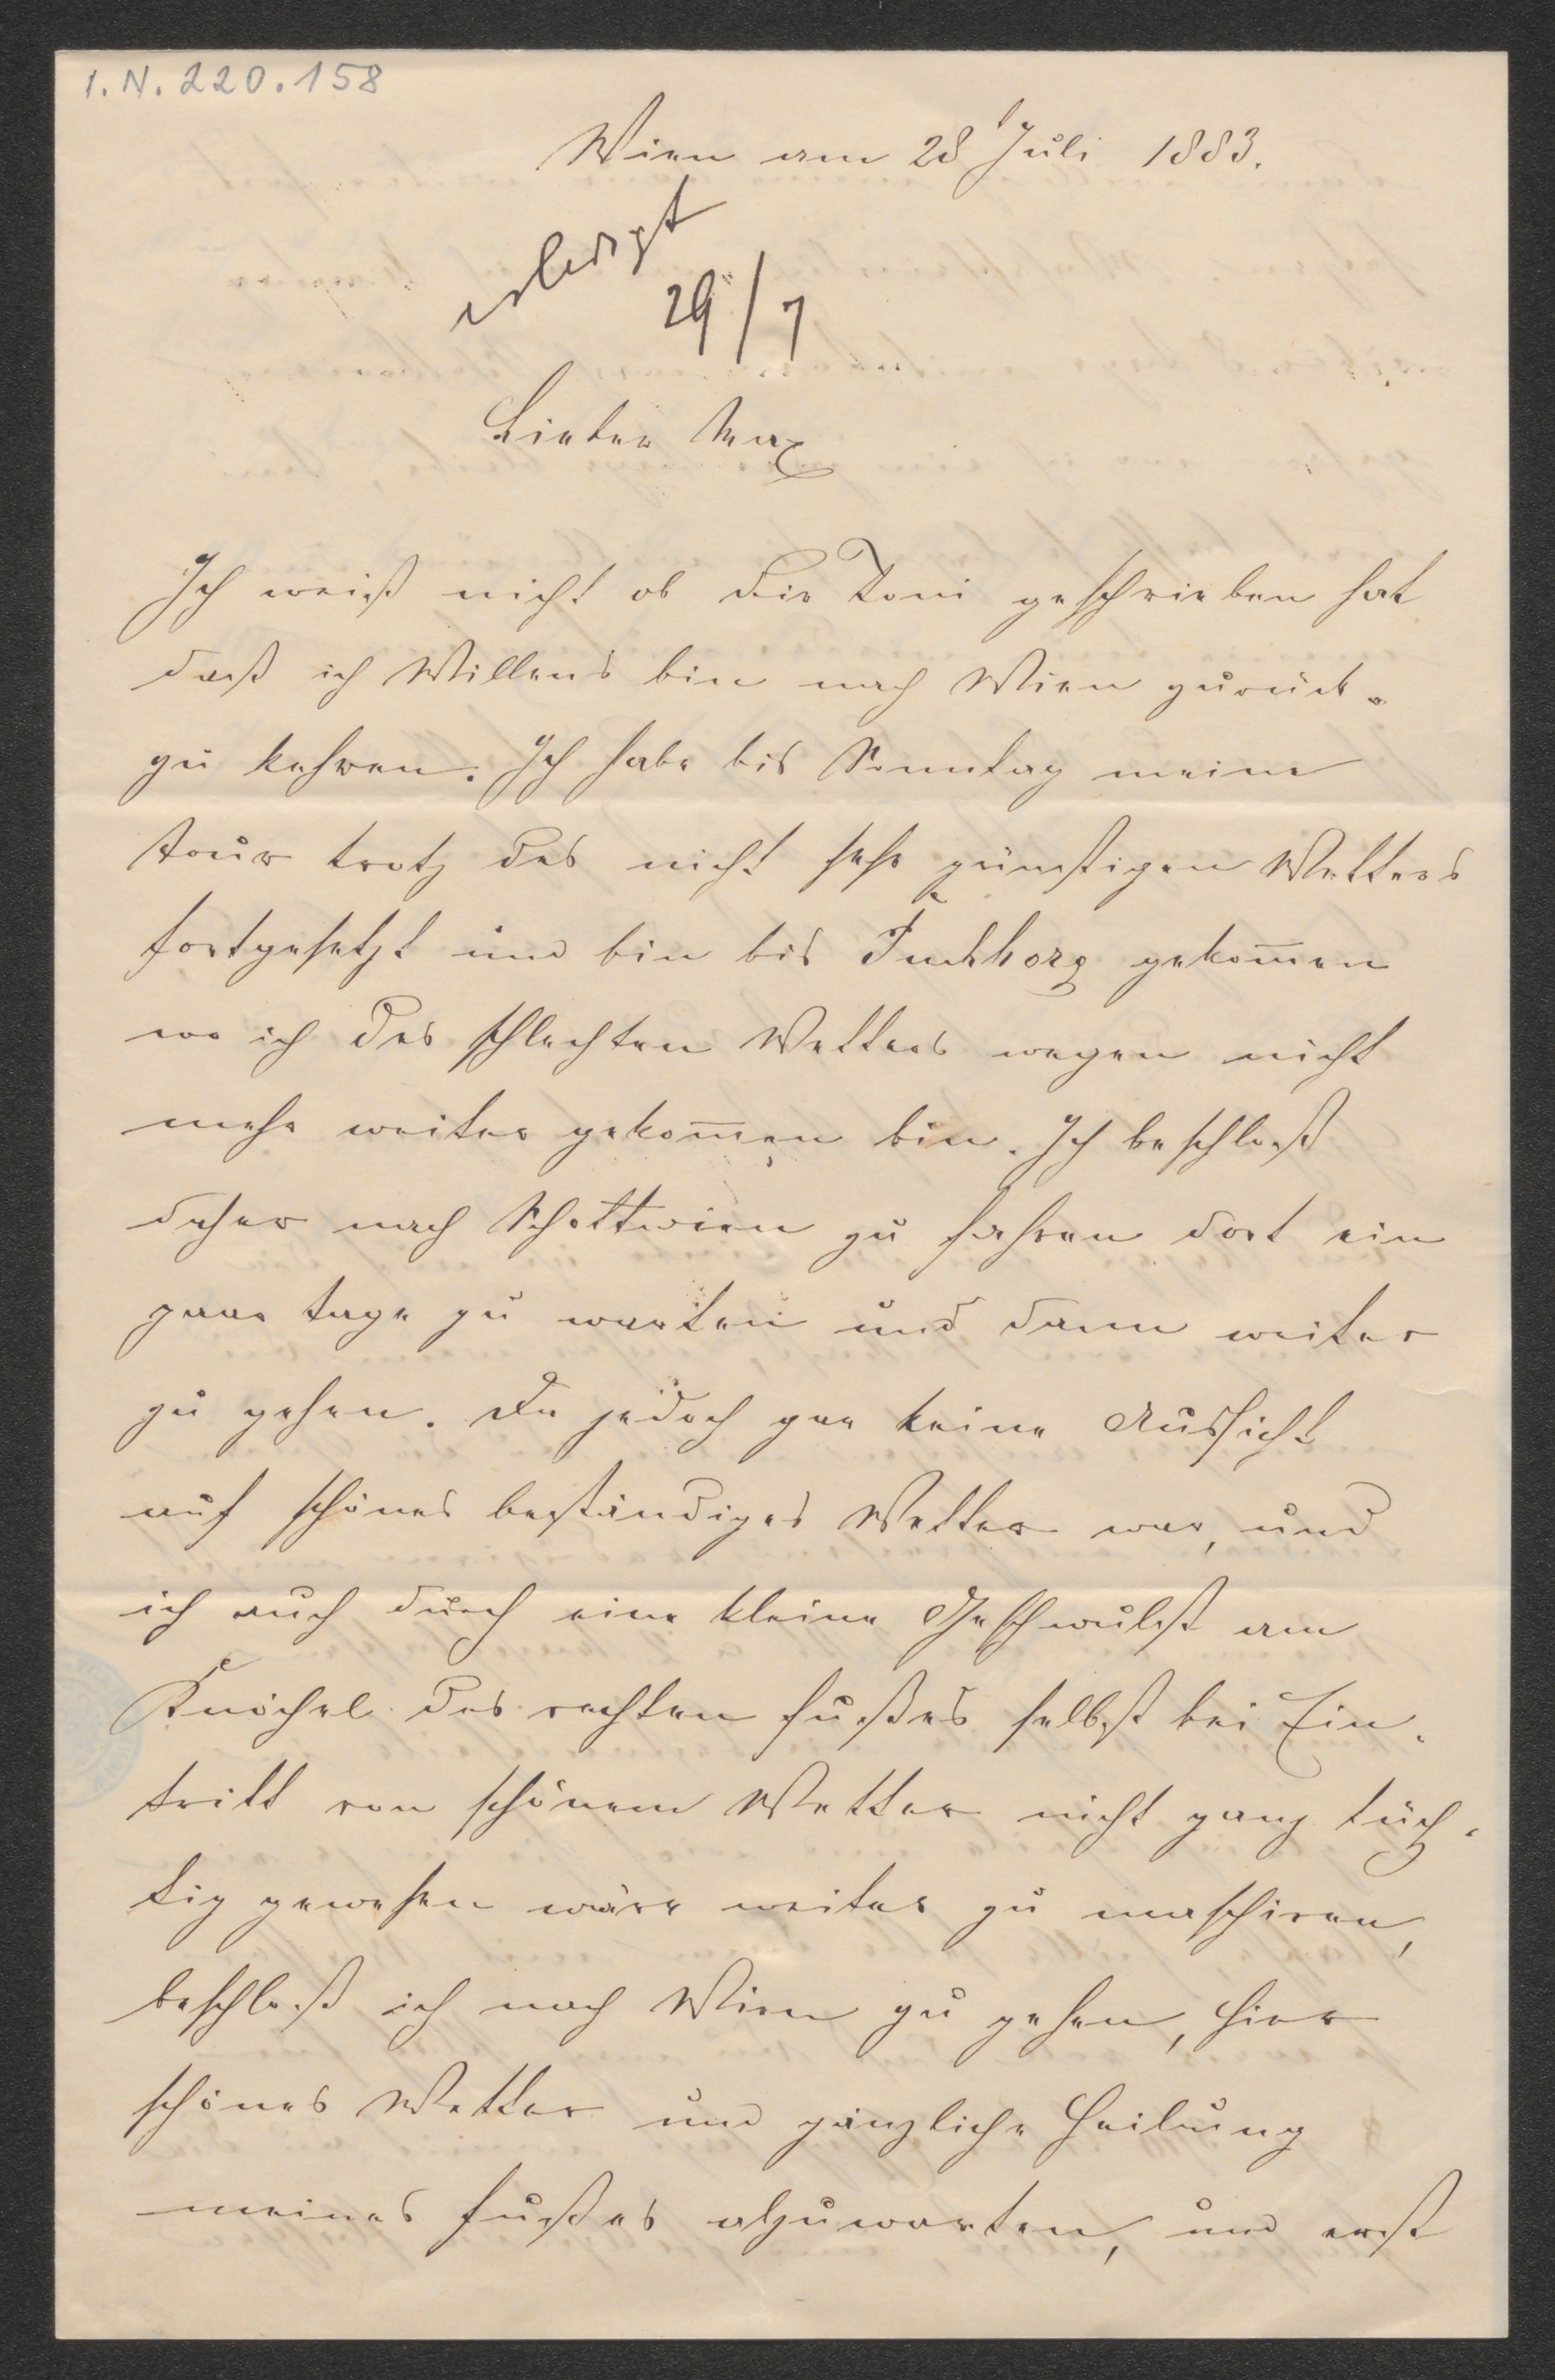 I.N. 220.158
Wien am 28 Juli 1883.
erledigt
29/7
Lieber Max
Ich weiß nicht ob dir Toni geschrieben hat
daß ich Willens bin nach Wien zurück-
zu kehren. Ich habe bis Sonntag meine
Tour trotz des nicht sehr günstigen Wetters
fortgesetzt und bin bis gekom̅en
wo ich des schlechten Wetters wegen nicht
mehr weiter gekom̅en bin. Ich beschloß
daher nach Schottwien zu fahren dort ein
paar Tage zu warten und dann weiter
zu gehen. Da jedoch gar keine Aussicht
auf schönes beständiges Wetter war, und
ich auch durch eine kleine Geschwulst am
Knöchel des rechten Fußes selbst bei Ein-
tritt von schönem Wetter nicht ganz tüch-
tig gewesen wäre weiter zu marschiren,
beschloß ich nach Wien zu gehen, hier
schönes Wetter und gänzliche Heilung
meines Fußes abzuwarten, und erst